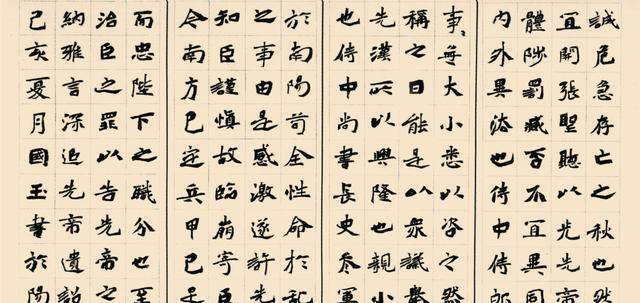 誠危急存亡之秋也然
宜開張聖聽以光先
體陟罰臧否不宜異同
內外異法也侍中侍郎
事無大小悉以咨之然
稱之曰能是以眾議舉
先漢所以興隆也親小
也侍中尚書長史參軍
於南陽苟全性命於亂
之事由是感激遂許先
知臣謹慎故臨崩寄臣
今南方已定兵甲已足
而忠陛下之職分也至
治臣之罪以告先帝
納雅言深追先帝遺詔
己亥夏月國玉書於陽